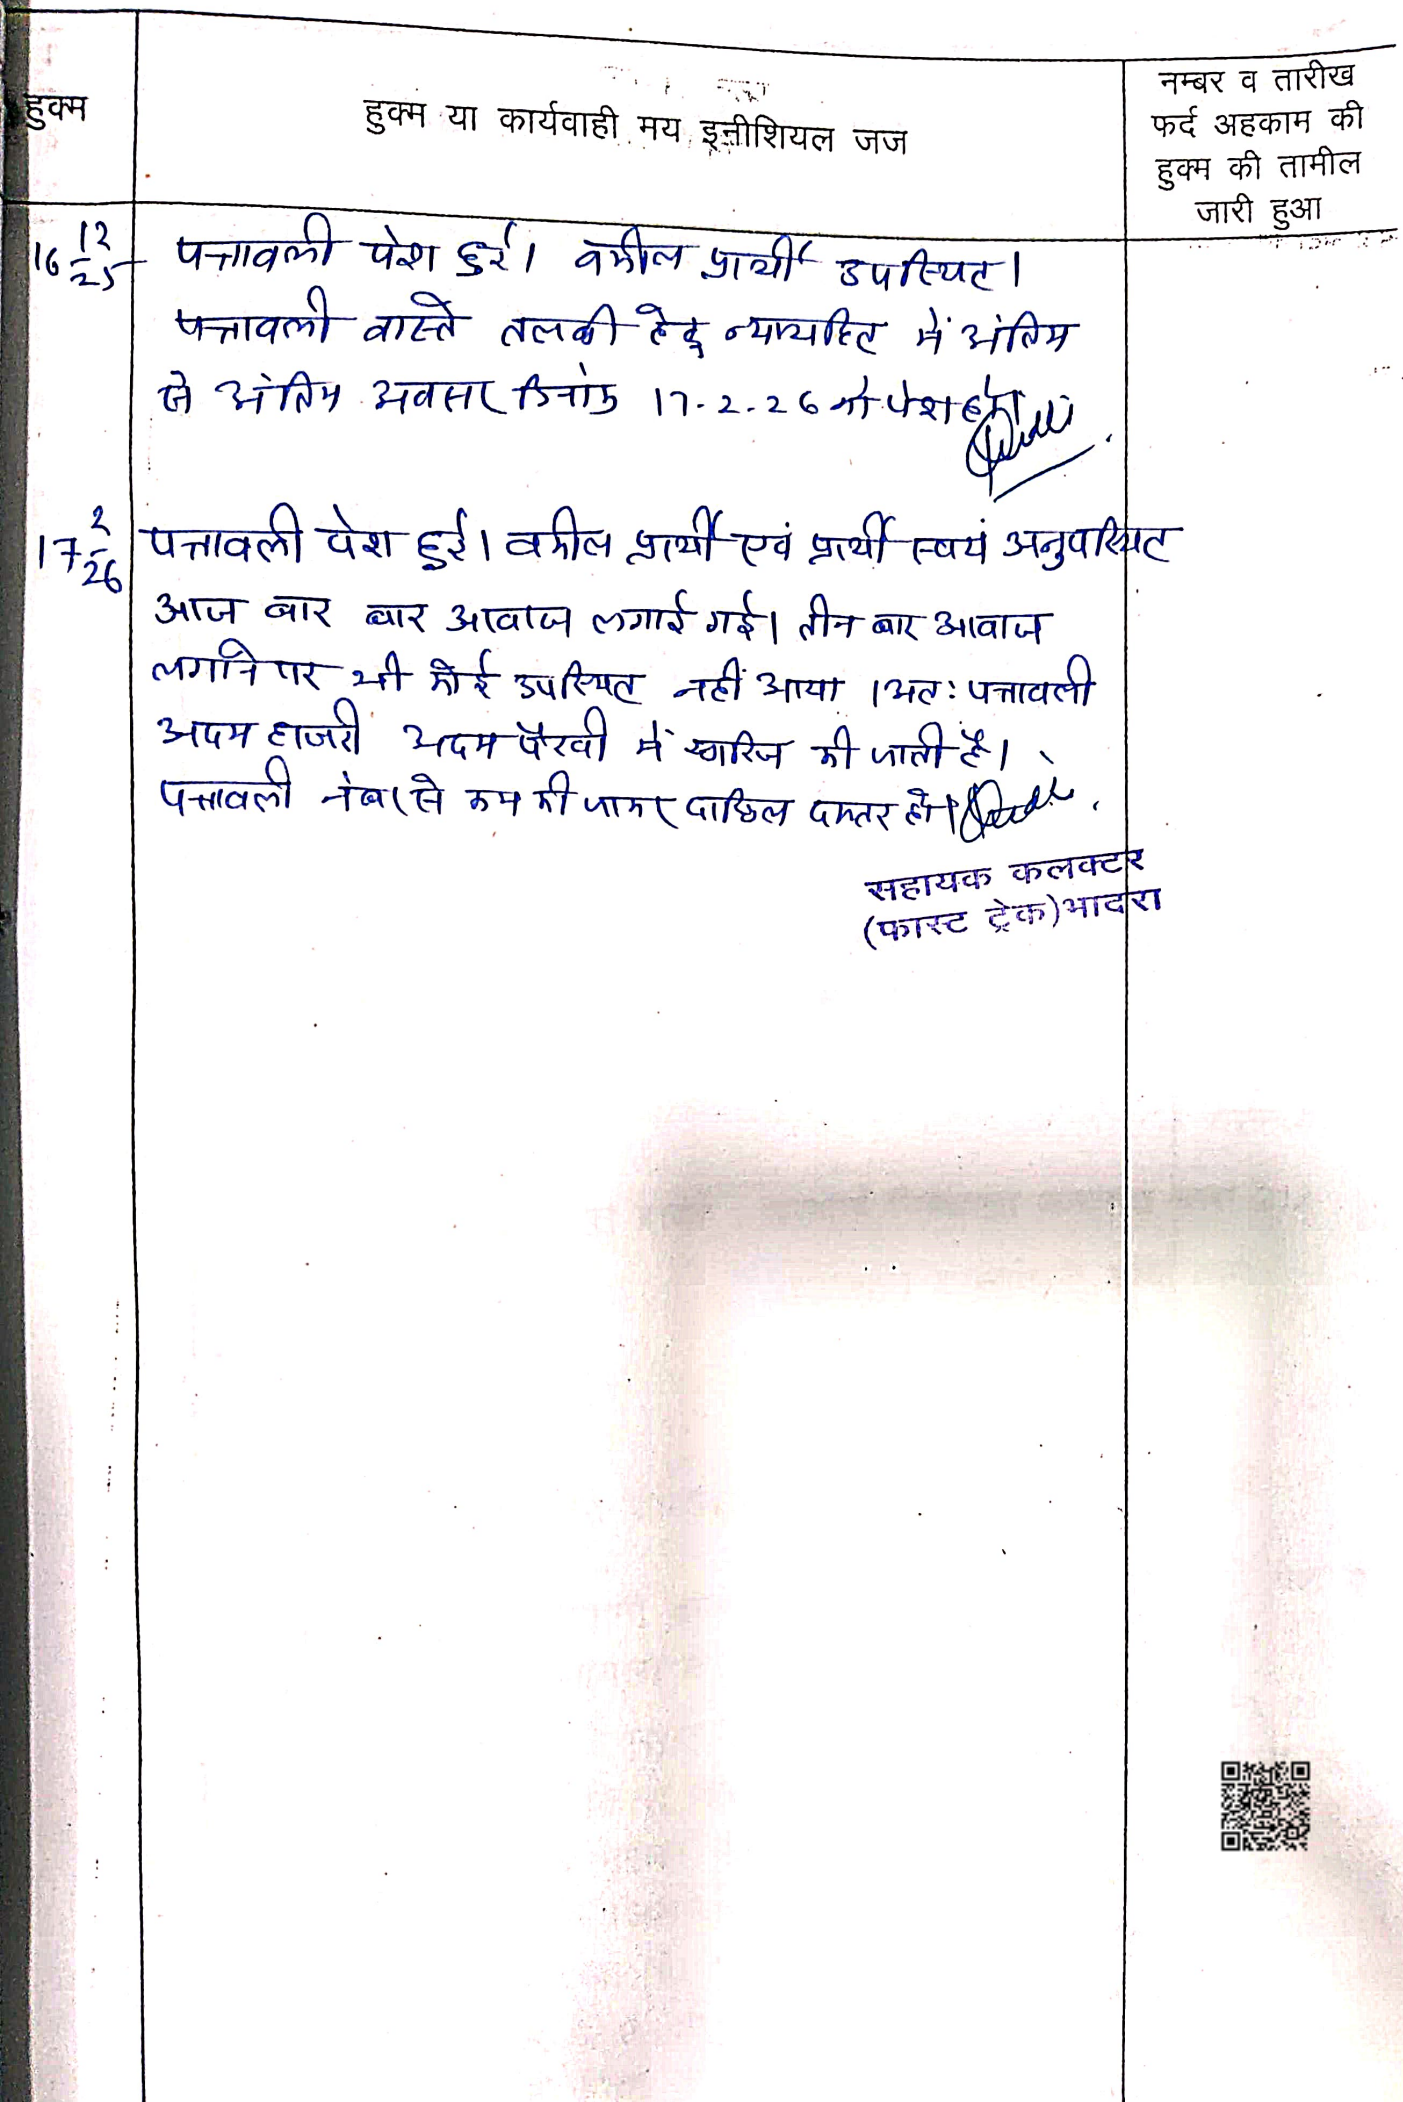 हुक्म
हुक्म या कार्यवाही मय इनीशियल जज
नम्बर व तारीख
फर्द अहकाम की
हुक्म की तामील
जारी हुआ
16 12/25
पत्रावली पेश हुई। वकील प्रार्थी उपस्थित।
पत्रावली वास्ते तलबी हेतु न्यायहित में अंतिम
से अंतिम अवसर दिनांक 17.2.26 को पेश हो।
17 2/26
पत्रावली पेश हुई। वकील प्रार्थी एवं प्रार्थी स्वयं अनुपस्थित
आज बार बार आवाज लगाई गई। तीन बार आवाज
लगाने पर भी कोई उपस्थित नहीं आया। अतः पत्रावली
अदम हाजरी अदम पैरवी में खारिज की जाती है।
पत्रावली नंबर से कम की जाकर दाखिल दफ्तर हो।
सहायक कलक्टर
(फास्ट ट्रेक) भादरा